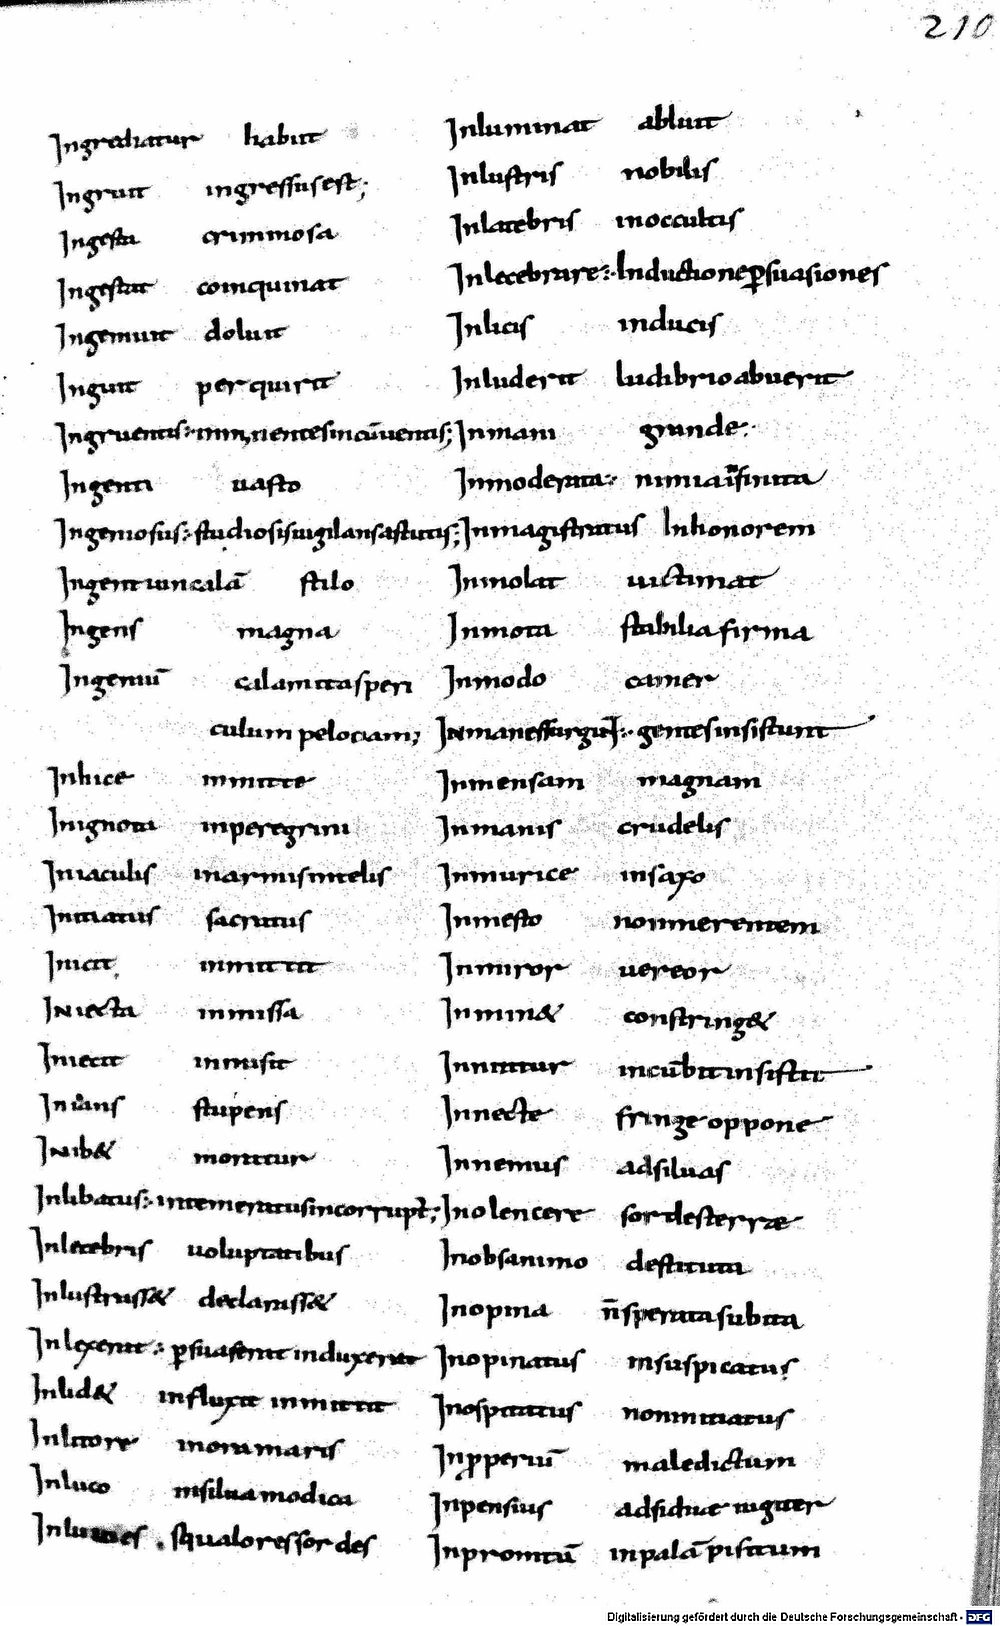 210
Ingrediatur habiit
Ingruit ingressus est;
Ingesta criminosa
Ingestat coinquinat
Ingemuit doluit
Inguit perquirit
Ingruentis: inminentes incūventis;
Ingenti uasto
Ingeniosus: studiosis uigilans astutis;
Ingent iuncalā stilo
Ingens magna
Ingeniū calamitas peri
culum pelociam;
Inhice inmitte
Inignota inperegrini
Iniaculis inarmis intelis
Initiatus sacratus
Inicit inmittit
Iniecta inmissa
Iniecit inmisit
Inians stupens
Inib& moratur
Inlibatus: intemeratus incorrupt;
Inlecebris uoluptatibus
Inlustrass& declarass&
Inlexerat: p̱suaserat induxerat
Inlid& influxit inmittit
Inlitore inoramaris
Inluco insilua modica
squalores sordes
Inluminat abluit
Inlustris nobilis
Inlatebris inoccultis
Inlecebrare: Inductione p̱suasiones
Inlicis inducis
Inluderit ludibrio abuerit
Inmani grande:
Inmoderata: nimia infinita
Inmagistratus Inhonorem
Inmolat uictimat
Inmota stabilia firma
Inmodo camer
gentes insistunt
Inmensam magnam
Inmanis crudelis
Inmurice insaxo
Inmesto nonmerentem
Inmiror uereor
Inmin& constring&
Innititur incūbit insistit
Innecte fringe oppone
Innemus adsiluas
Inolencere sordes terrae
Inobsanimo destituta
Inopina n̄ sperata subita
Inopinatus insuspicatus
Inospitatus nonmitiatus
Inp̱periū maledictum
Inpensius adsiduae iugiter
Inpromtū inpalā pisitum
Digitalisierung gefördert durch die Deutsche Forschungsgemeinschaft - DFG